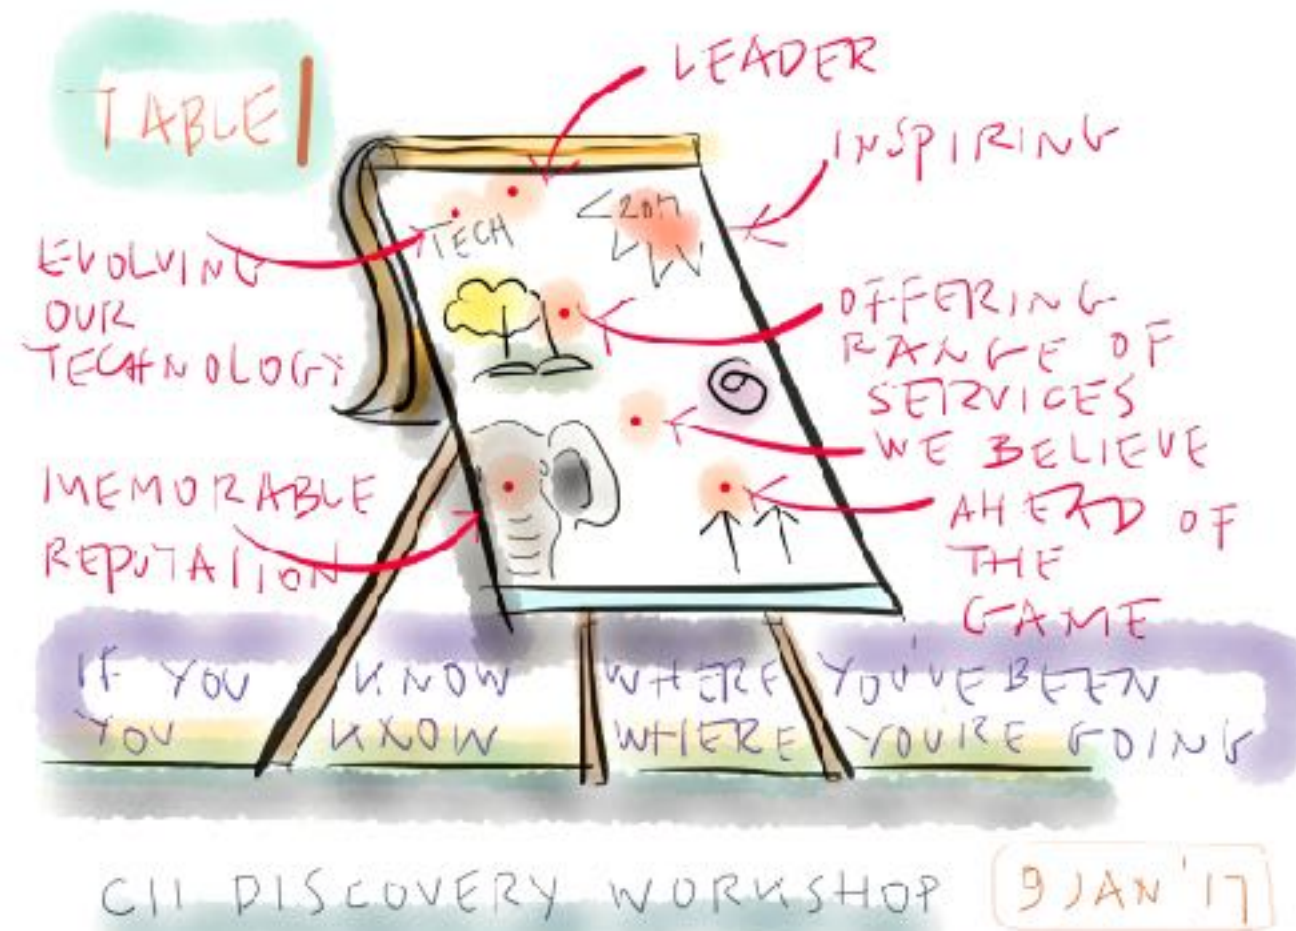 TABLE 1
LEADER
INSPIRING
TECH
2017
EVOLVING
OUR
TECHNOLOGY
OFFERING
RANGE OF
SERVICES
WE BELIEVE
MEMORABLE
REPUTATION
AHEAD OF
THE
GAME
IF YOU KNOW WHERE YOU'VE BEEN
YOU KNOW WHERE YOU'RE GOING
CII DISCOVERY WORKSHOP
9 JAN '17